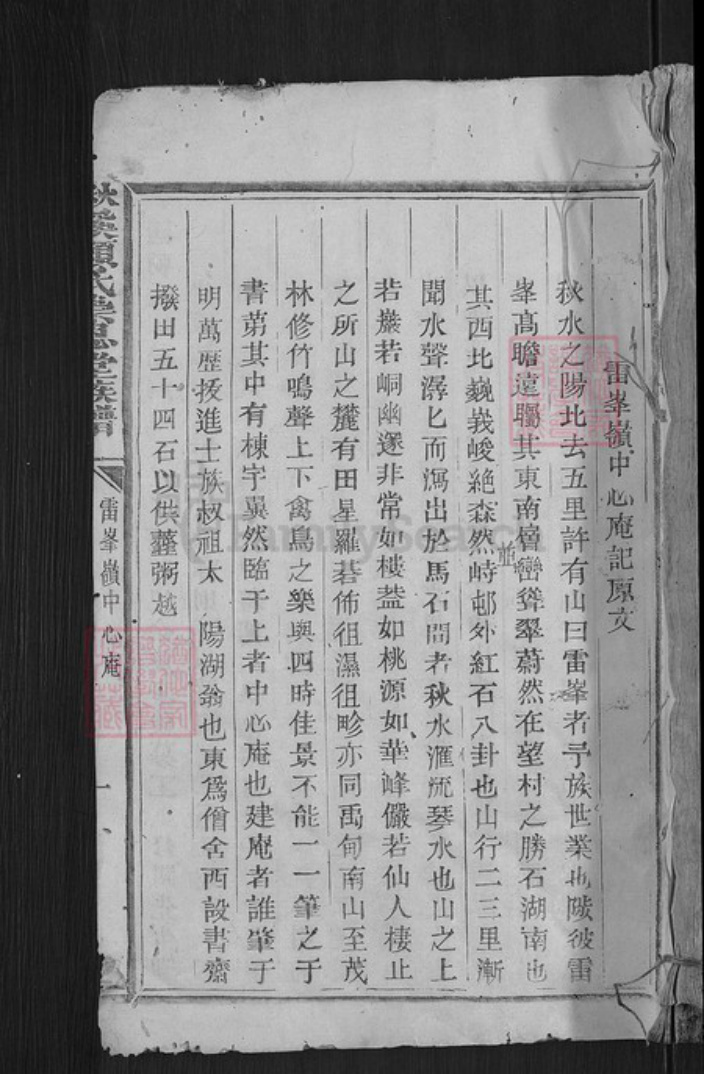 雷峯嶺中心庵記原文
秋水之陽北去五里許有山曰雷峯者予族世業也陟彼雷
峯高瞻遠矚其東南層巒聳翠蔚然在望村之勝石湖南也
其西北巍峩峻絶森然峙邨外紅石八卦也山行二三里漸
並
聞水聲潺匕而瀉出於馬石間者秋水滙流琴水也山之上
若巖若峒幽邃非常如樓葢如桃源如華峰儼若仙人棲止
之所山之麓有田星羅碁佈徂濕徂畛亦同禹甸南山至茂
林修竹鳴聲上下禽鳥之樂與四時佳景不能一一筆之于
書第其中有棟宇翼然臨于上者中心庵也建庵者誰肇于
明萬歷授進士族叔祖太 陽湖翁也東爲僧舍西設書齋
撥田五十四石以供虀粥越
秋溪 氏 思堂族譜
雷峯嶺中心庵
一